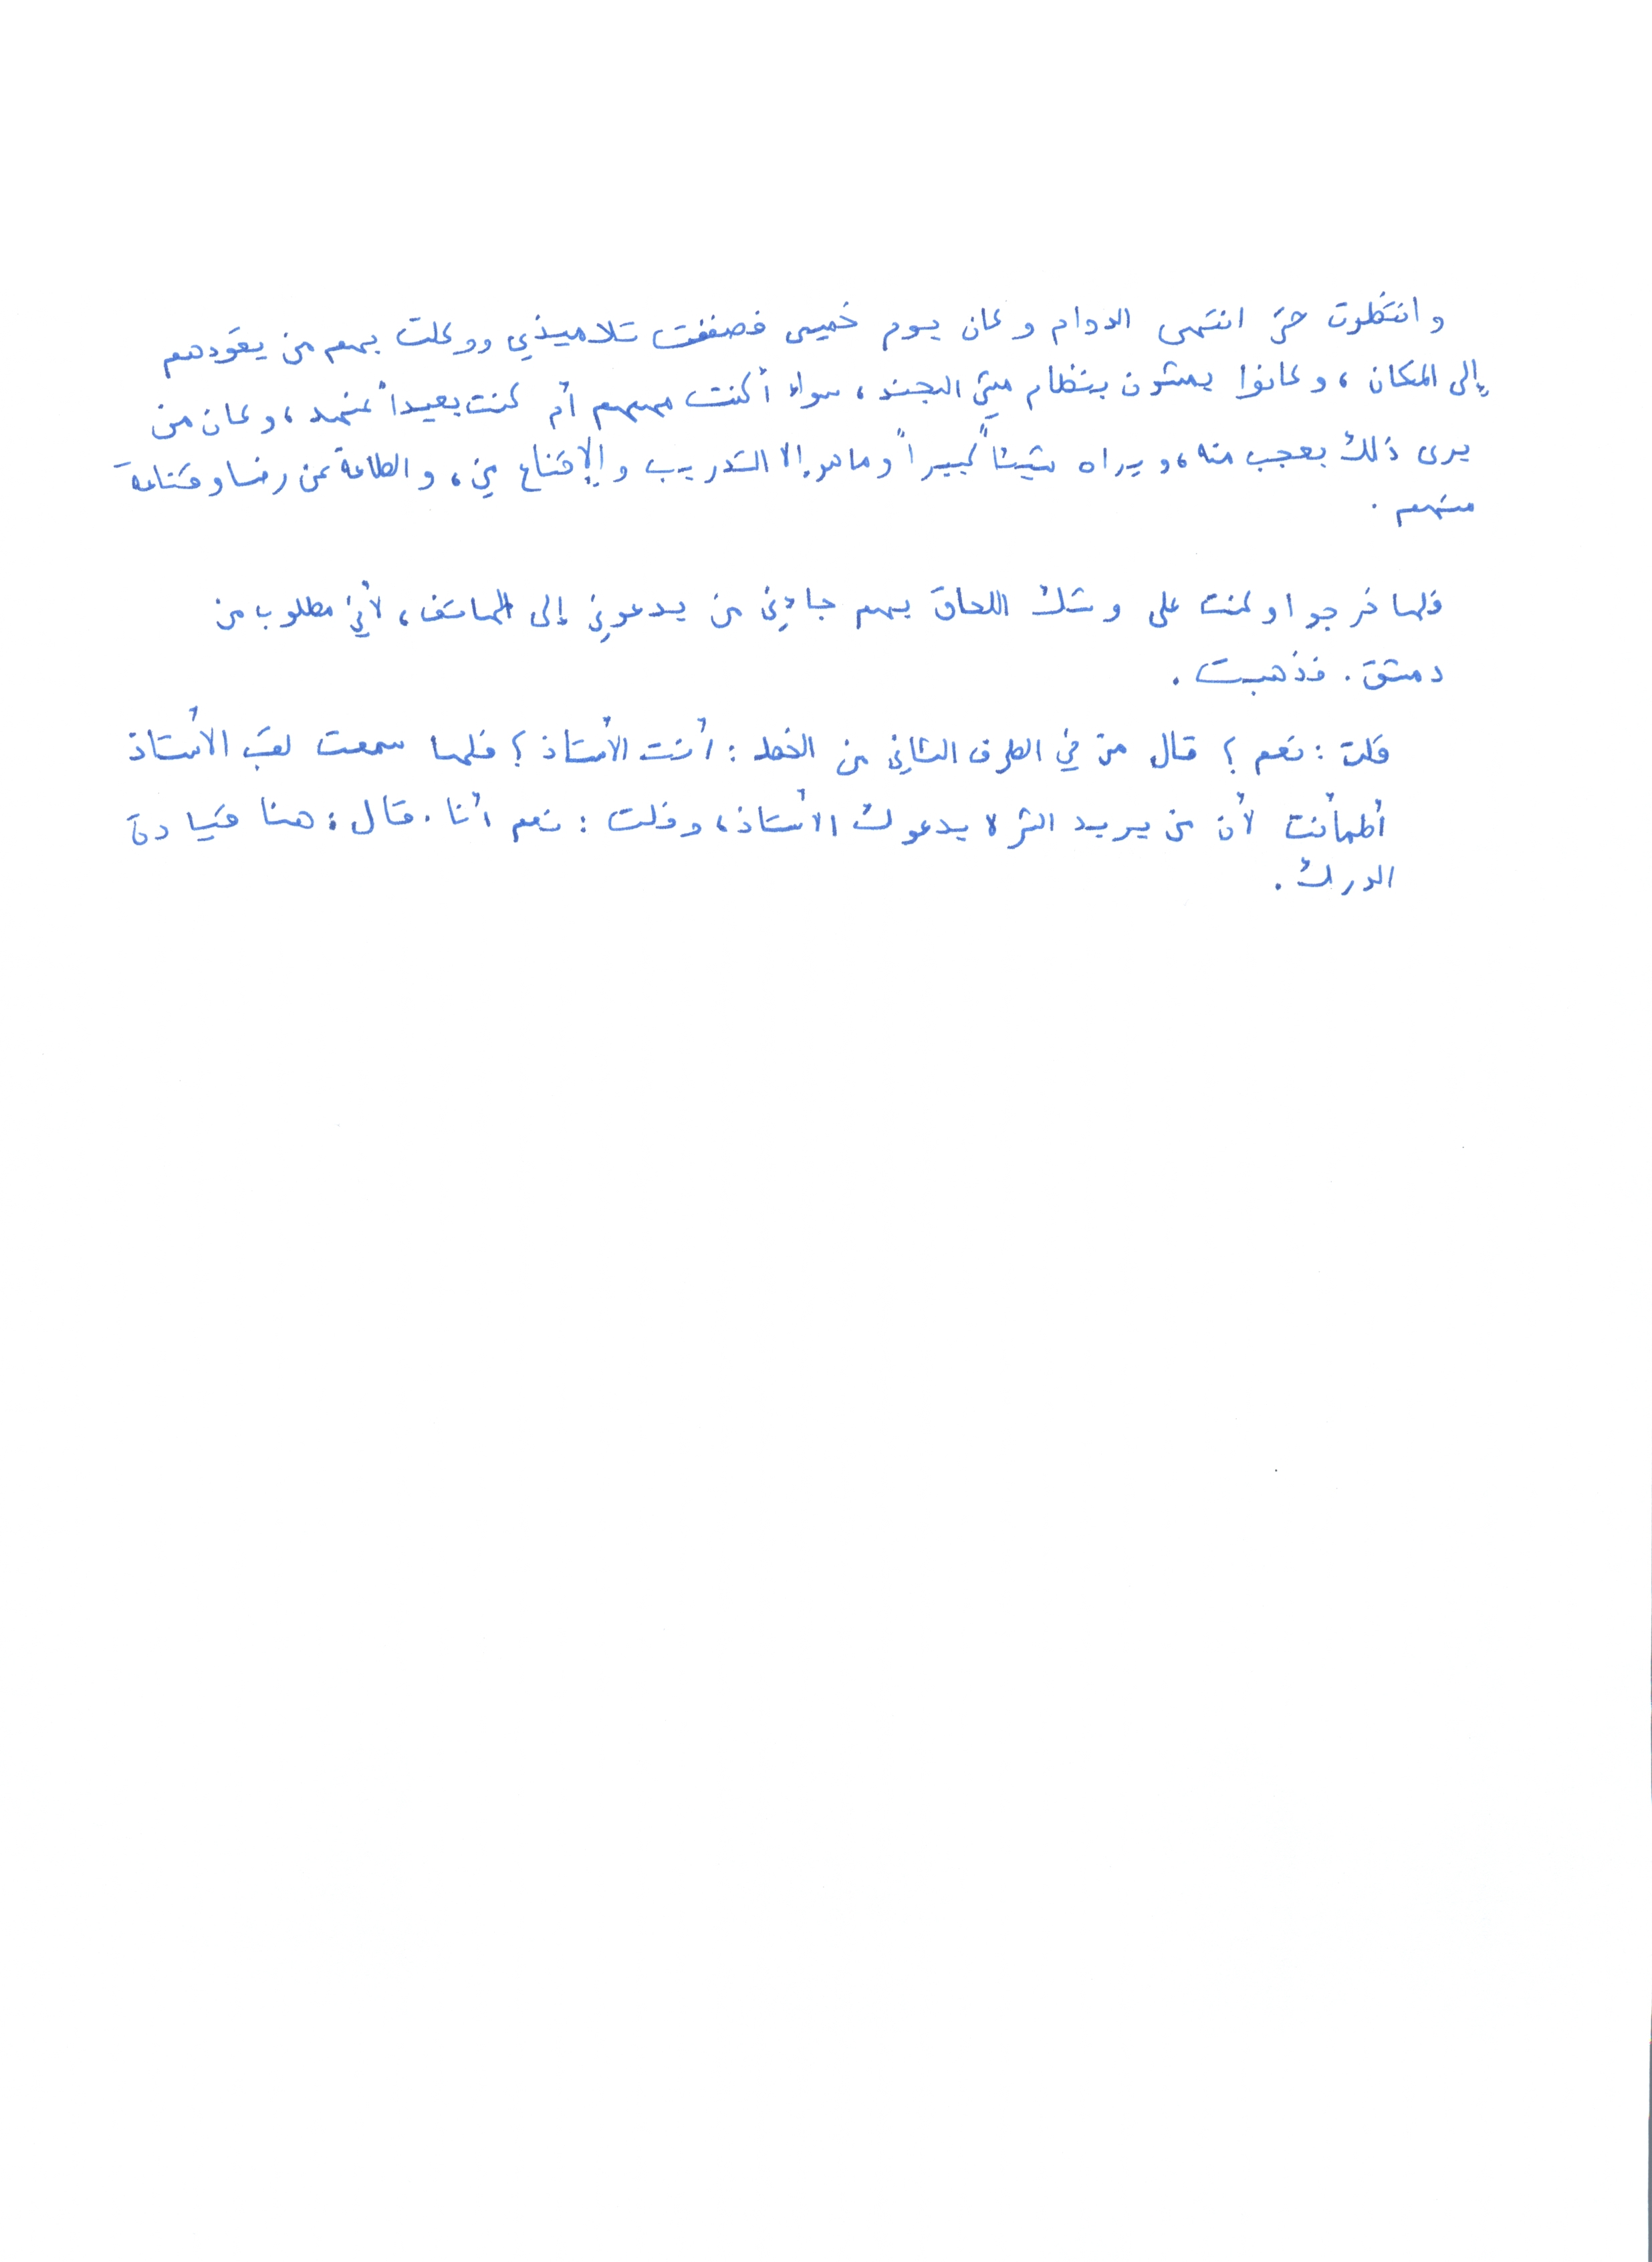 وانتظرت حتى انتهى الدوام وكان يوم خميس فصففت تلاميذي ووكلت بهم من يقودهم
إلى المكان، وكانوا يمشون بنظام مشي الجند، سواء أكنت معهم أم كنت بعيداً عنهم، وكان من
يرى ذلك يعجب منه، ويراه شيئاً كبيراً وما هو إلا التدريب والإقناع مني، والطاعة عن رضا وقناعة
منهم.
فلما خرجوا وكنت على وشك اللحاق بهم جاءني من يدعوني إلى الهاتف، لأني مطلوب من
دمشق. فذهبت.
قلت: نعم؟ قال من في الطرف الثاني من الخط: أأنت الأستاذ؟ فلما سمعت لقب الأستاذ
أطمأنت لأن من يريد الشر لا يدعوك الأستاذ، وقلت: نعم أنا. قال: هنا قيادة
الدرك.